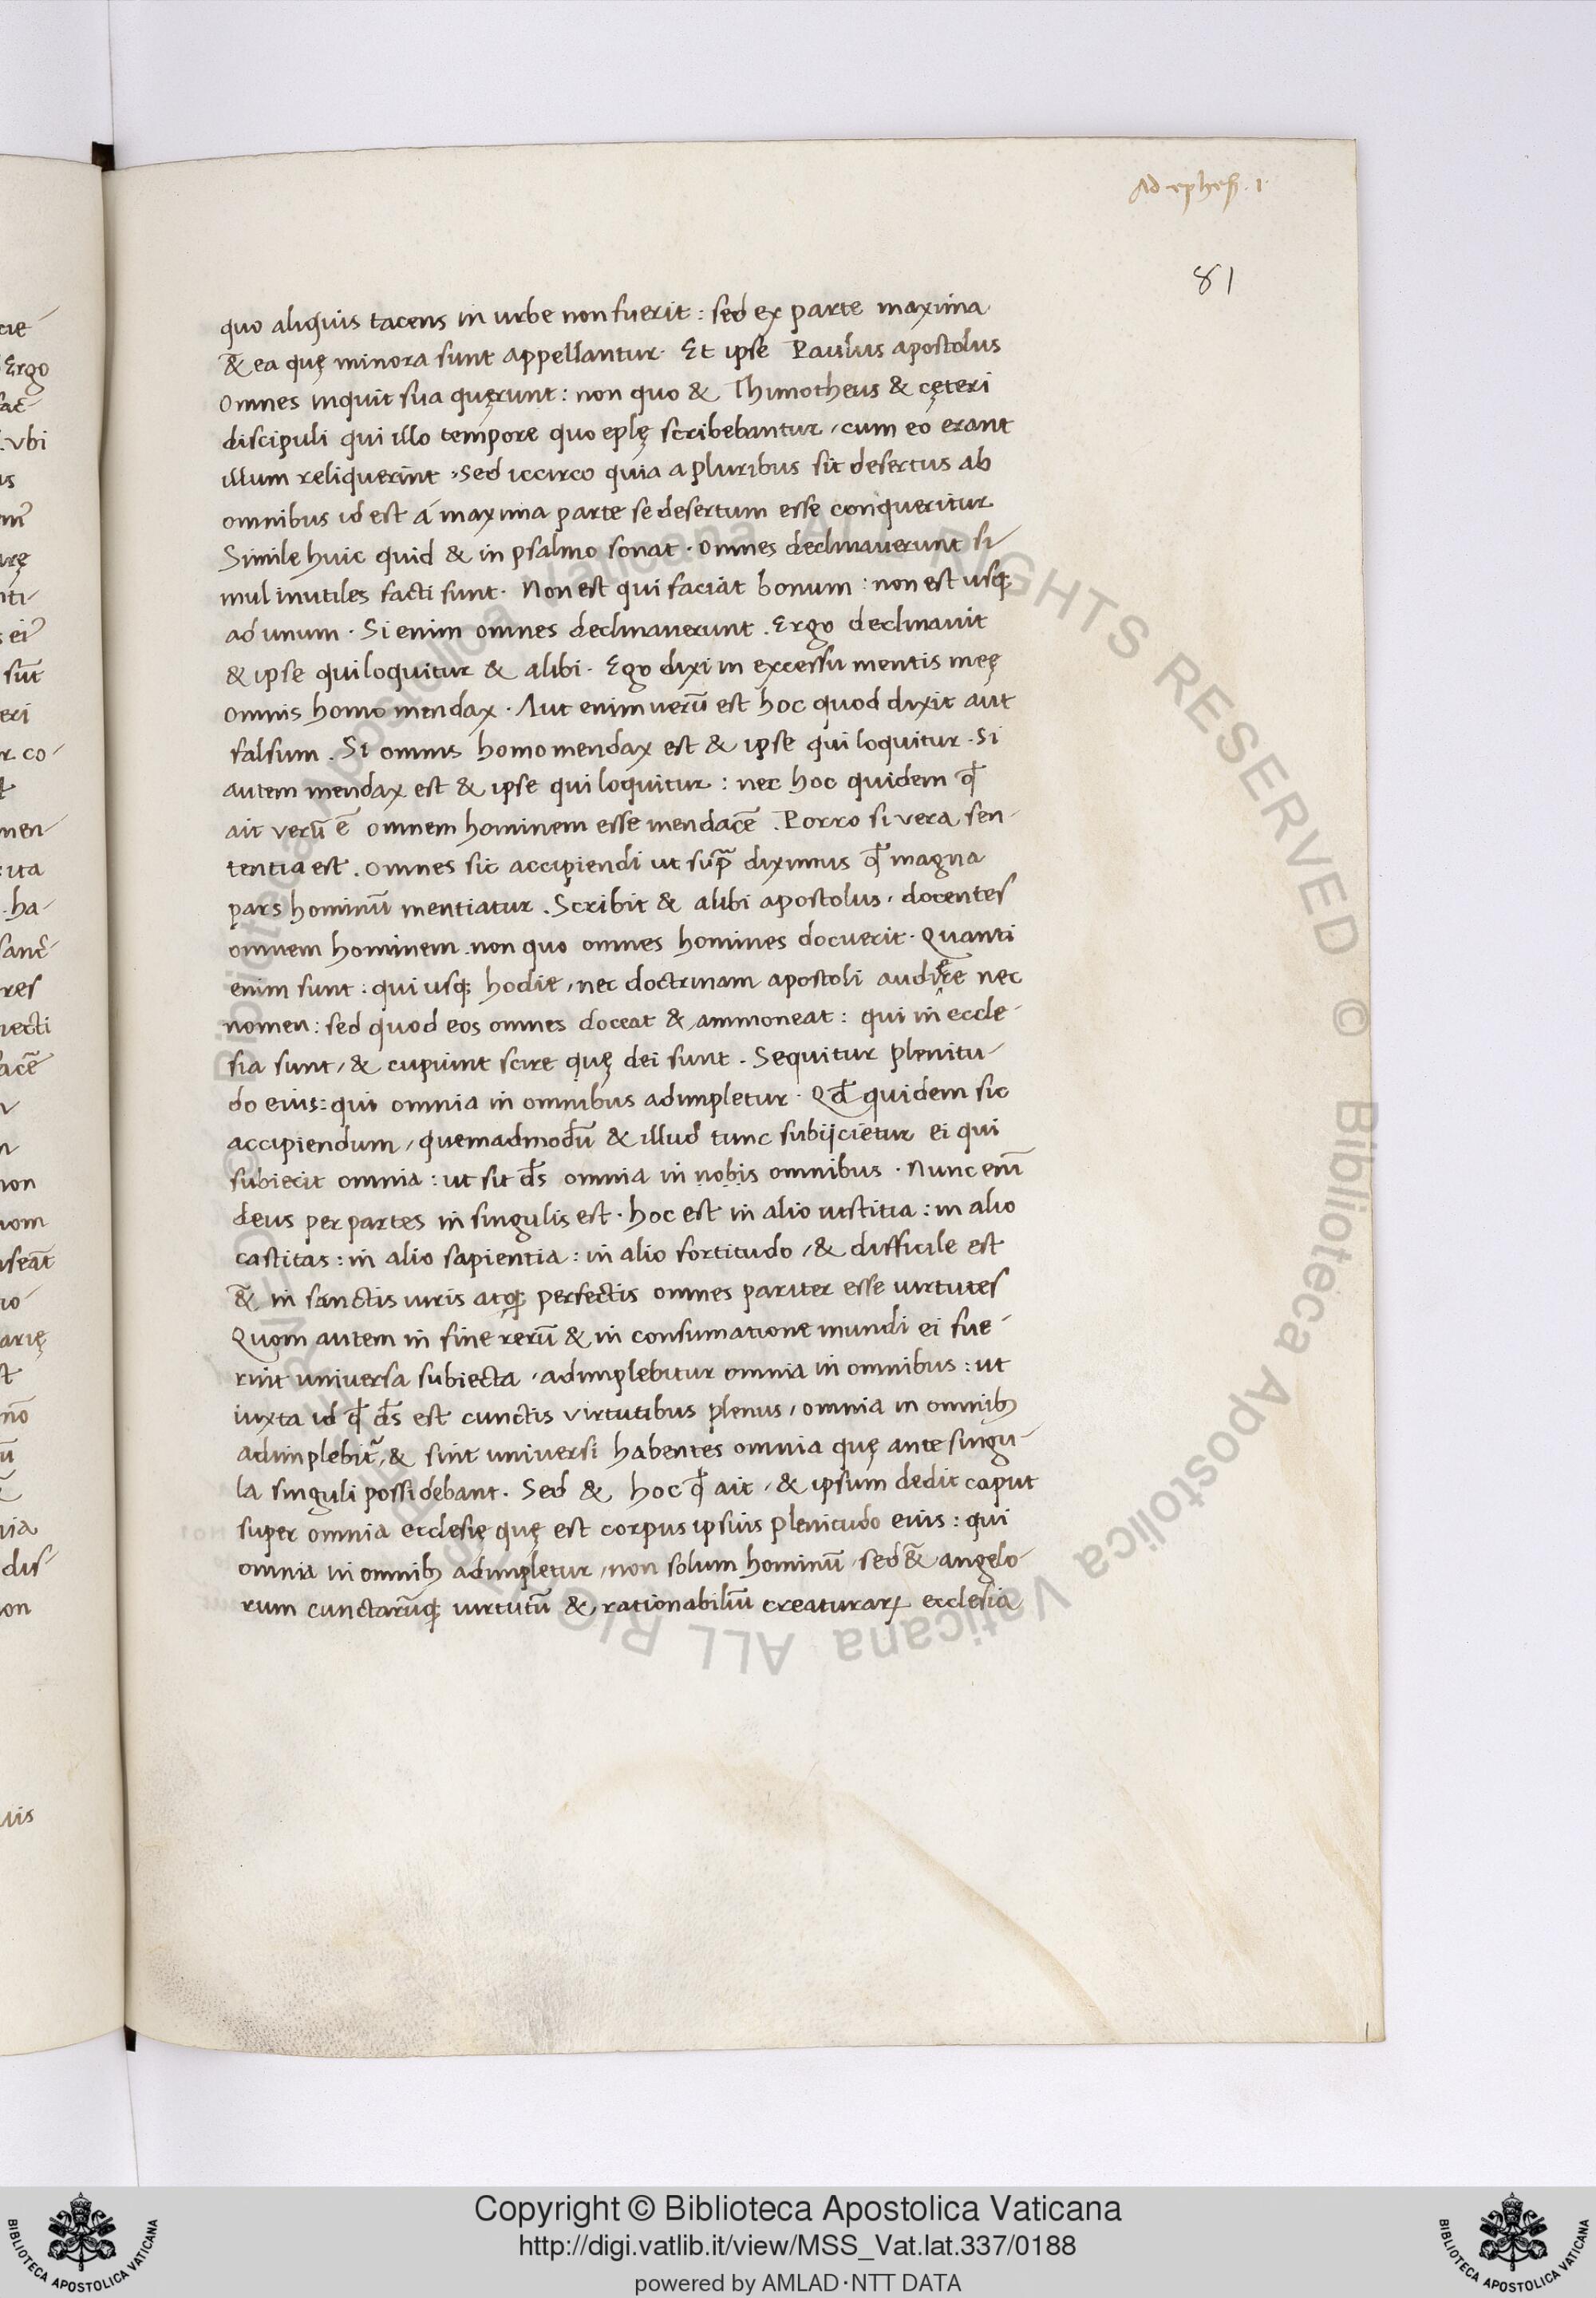 Ad ephes. 1.
81
quo aliquis tacens in urbe non fuerit : sed ex parte maxima
& ea quę minora sunt appellantur. Et ipse Paulus apostolus
Omnes inquit sua quęrunt : non quo & Thimotheus & cęteri
discipuli qui illo tempore quo eplę scribebantur, cum eo erant
illum reliquerint, Sed iccirco quia a pluribus sit desertus ab
omnibus id est á maxima parte se desertum esse conqueritur
Simile huic quid & in psalmo sonat. Omnes declinaverunt si-
mul inutiles facti sunt. Non est qui faciat bonum : non est usq;
ad unum. Si enim omnes declinaverunt. Ergo declinavit
& ipse qui loquitur & alibi. Ego dixi in excessu mentis meę
omnis homo mendax. Aut enim verū est hoc quod dixit aut
falsum. Si omnis homo mendax est & ipse qui loquitur. Si
autem mendax est & ipse qui loquitur : nec hoc quidem qđ
ait verū ē omnem hominem esse mendacē. Porro si vera sen-
tentia est. omnes sic accipiendi ut supͣ diximus qđ magna
pars hominū mentiatur. Scribit & alibi apostolus, docentes
omnem hominem. non quo omnes homines docuerit. Quanti
enim sunt : qui usq; hodie, nec doctrinam apostoli audire nec
nomen : sed quod eos omnes doceat & ammoneat : qui in eccle-
sia sunt, & cupiunt scire quę dei sunt. Sequitur plenitu-
do eius : qui omnia in omnibus adimpletur. Qđ quidem sic
accipiendum, quemadmodū & illud tunc subijcietur ei qui
subiecit omnia : ut sit d̄s omnia in nobis omnibus. Nunc enī
deus per partes in singulis est. hoc est in alio iustitia : in alio
castitas : in alio sapientia : in alio fortitudo, & difficile est
&̄ in sanctis viris atq; perfectis omnes pariter esse virtutes
Quom autem in fine rerū & in consumatione mundi ei fue-
rint universa subiecta, adimplebitur omnia in omnibus : ut
iuxta id qđ d̄s est cunctis virtutibus plenus, omnia in omnib;
adimplebit᷑, & sint universi habentes omnia quę ante singu-
la singuli possidebant. Sed & hoc qđ ait, & ipsum dedit caput
super omnia ecclesię quę est corpus ipsius plenitudo eius : qui
omnia in omnib; adimpletur, non solum hominū, sed &̄ angelo-
rum cunctarūq; virtutū & rationabiliū creaturaꝝ ecclesia
Copyright © Biblioteca Apostolica Vaticana
http://digi.vatlib.it/view/MSS_Vat.lat.337/0188
powered by AMLAD·NTT DATA